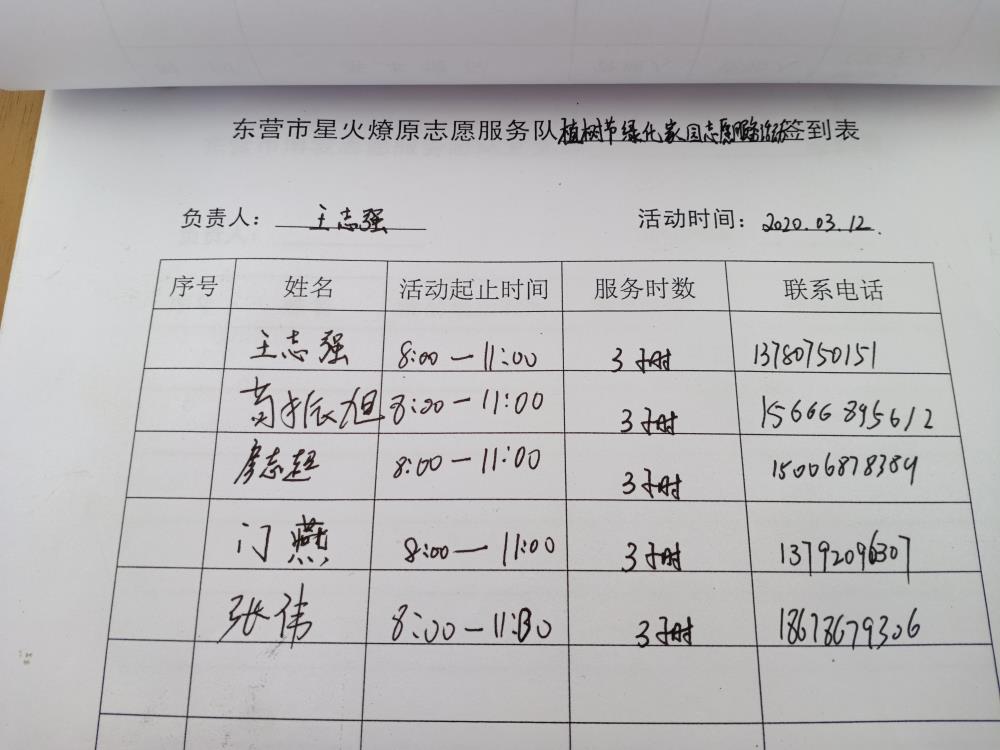 东营市星火燎原志愿服务队植树节绿化家园志愿服务活动签到表
负责人：王志强 活动时间：2020.03.12.
序号 姓名 活动起止时间 服务时数 联系电话
王志强 8:00—11:00 3小时 13780750151
黄振旭 8:00—11:00 3小时 15666895612
廖志超 8:00—11:00 3小时 15006878389
门燕 8:00—11:00 3小时 13792096307
张伟 8:00—11:00 3小时 18678679306